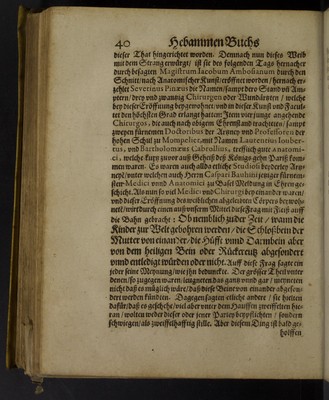 40 Hebammen Buchs
dieser That hingerichtet worden. Demnach nun dieses Weib
mit dem Strang erwürgt / ist sie des folgenden Tags hernacher
durch besagten Magistrum Iacobum Ambosianum durch den
Schnitt / nach Anatomischer Kunst / eröffnet worden / hernach er-
gehlet Severinus Pinæus die Namen / sampt dero Stand vñ Am-
ptern / drey vnd zwantzig Chirurgen oder Wundärtzten / welche
bey dieser Eröffnung beygewohnet / vnd in dieser Kunst vnd Facul-
tet den höchsten Grad erlangt hatten: Item vier junge angehende
Chirurgos, die auch nach obigem Ehrenstand trachteten / sampt
zweyen fürnemen Doctoribus der Artzney vnd Professoren der
hohen Schul zu Mompelier, mit Namen Laurentius Ioubert-
tus, vnd Bartholomæus Cabrollius, trefflich gute Anatomi-
ci, welche kurtz zuvor auß Geheiß deß Königs gehn Pariß kom-
men waren. Es waren auch alldo etliche Studiosi beyderley Artz-
ney / vnter welchen auch Herrn Caspari Bauhini jeniger fürnem-
ster Medici vnnd Anatomici zu Basel Meldung in Ehren ge-
schicht. Als nun so viel Medici vnd Chirurgi bey einander waren /
vnd dieser Eröffnung des weiblichen abgeleibten Cörpers beywoh-
net / wird durch einen auß vnserm Mittel diese Frag mit Fleiß auff
die Bahn gebracht: Ob nemblich zu der Zeit / wann die
Kinder zur Welt gebohren werden / die Schloßbein der
Mutter von einander / die Hüfft vnnd Darmbein aber
von dem heiligen Bein oder Rückgreth abgesondert
vnnd entledigt würden oder nicht. Auff diese Frag sagte ein
jeder seine Meynung / wie jhn bedunckte. Der größer Theil vnter
denen / so zugegen waren / leugneten das gantz vnnd gar / meyneten
nicht daß es müglich wäre / daß diese Beine von einander abgeson-
dert werden köndten. Dagegen sagten etliche andere / sie hielten
dafür / daß es geschehe / viel aber vnter dem Hauffen zweiffelten hie-
ran / wolten weder dieser oder jener Partey beypflichten / sondern
schwiegen / als zweiffelhafftig stille. Aber diesem Ding ist bald ge-
holffen